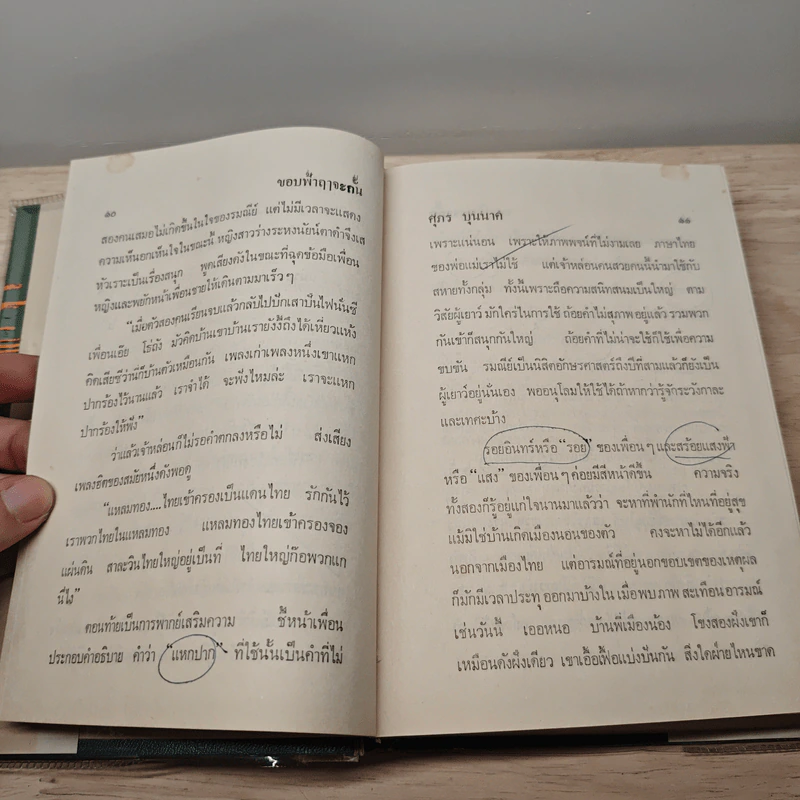 ขอบฟ้าฤๅจะกั้น
๑๐
สองคนเสมอไม่เกิดขึ้นในใจของรมณีย์ แต่ไม่มีเวลาจะแสดง
ความเห็นอกเห็นใจในขณะนี้ หญิงสาวร่างระหงนัยน์ตาดำจึงเส
หัวเราะเป็นเรื่องสนุก พูดเสียงดังในขณะที่ฉุดข้อมือเพื่อน
หญิงและพยักหน้าเพื่อนชายให้เดินตามมาเร็วๆ
“เมื่อตัวสองคนเรียนจบแล้วกลับไปปักเสาบึนไฟนั่นซี
เพื่อนเอ๊ย โธ่ถัง มัวคิดบ้านเขาบ้านเรายังงี้ถึงได้เหี่ยวแห้ง
คิดเสียซีว่านี่ก็บ้านตัวเหมือนกัน เพลงเก่าเพลงหนึ่งเขาแหก
ปากร้องไว้นานแล้ว เราจำได้ จะฟังไหมล่ะ เราจะแหก
ปากร้องให้ฟัง”
ว่าแล้วเจ้าหล่อนก็ไม่รอคำตกลงหรือไม่ ส่งเสียง
เพลงฮิตของสมัยหนึ่งดังพอดู
“แหลมทอง....ไทยเข้าครองเป็นแดนไทย รักกันไว้
เราพวกไทยในแหลมทอง แหลมทองไทยเข้าครองจอง
แผ่นดิน สาละวินไทยใหญ่อยู่เป็นที่ ไทยใหญ่ก๊อพวกแก
นี่ไง”
ตอนท้ายเป็นการพากย์เสริมความ ชี้หน้าเพื่อน
ประกอบคำอธิบาย คำว่า “แหกปาก” ที่ใช้นั้นเป็นคำที่ไม่
ศุภร บุนนาค
๑๑
เพราะแน่นอน เพราะให้ภาพพจน์ที่ไม่งามเลย ภาษาไทย
ของพ่อแม่เราไม่ใช้ แต่เจ้าหล่อนคนสวยคนนี้นำมาใช้กับ
สหายทั้งกลุ่ม ทั้งนี้เพราะถือความสนิทสนมเป็นใหญ่ ตาม
วิสัยผู้เยาว์ มักใคร่ในการใช้ ถ้อยคำไม่สุภาพ อยู่แล้ว รวมพวก
กันเข้าก็สนุกกันใหญ่ ถ้อยคำที่ไม่น่าจะใช้ก็ใช้เพื่อความ
ขบขัน รมณีย์เป็นนิสิตอักษรศาสตร์ถึงปีที่สามแล้วก็ยังเป็น
ผู้เยาว์อยู่นั่นเอง พออนุโลมให้ใช้ได้ถ้าหากว่ารู้จักระวังกาละ
และเทศะบ้าง
รอยอินทร์หรือ “รอย” ของเพื่อนๆ และสร้อยแสงฟ้า
หรือ “แสง” ของเพื่อนๆ ค่อยมีสีหน้าดีขึ้น ความจริง
ทั้งสองก็รู้อยู่แก่ใจนานมาแล้วว่า จะหาที่พำนักที่ไหนที่อยู่สุข
แม้มิใช่บ้านเกิดเมืองนอนของตัว คงจะหาไม่ได้อีกแล้ว
นอกจากเมืองไทย แต่อารมณ์ที่อยู่นอกขอบเขตของเหตุผล
ก็มักมีเวลาประทุ ออกมาบ้างใน เมื่อ พบ ภาพ สะเทือน อารมณ์
เช่นวันนี้ เออหนอ บ้านพี่เมืองน้อง โขงสองฝั่งเขาก็
เหมือนดังฝั่งเดียว เขาเอื้อเฟื้อแบ่งปันกัน สิ่งใดฝ่ายไหนขาด